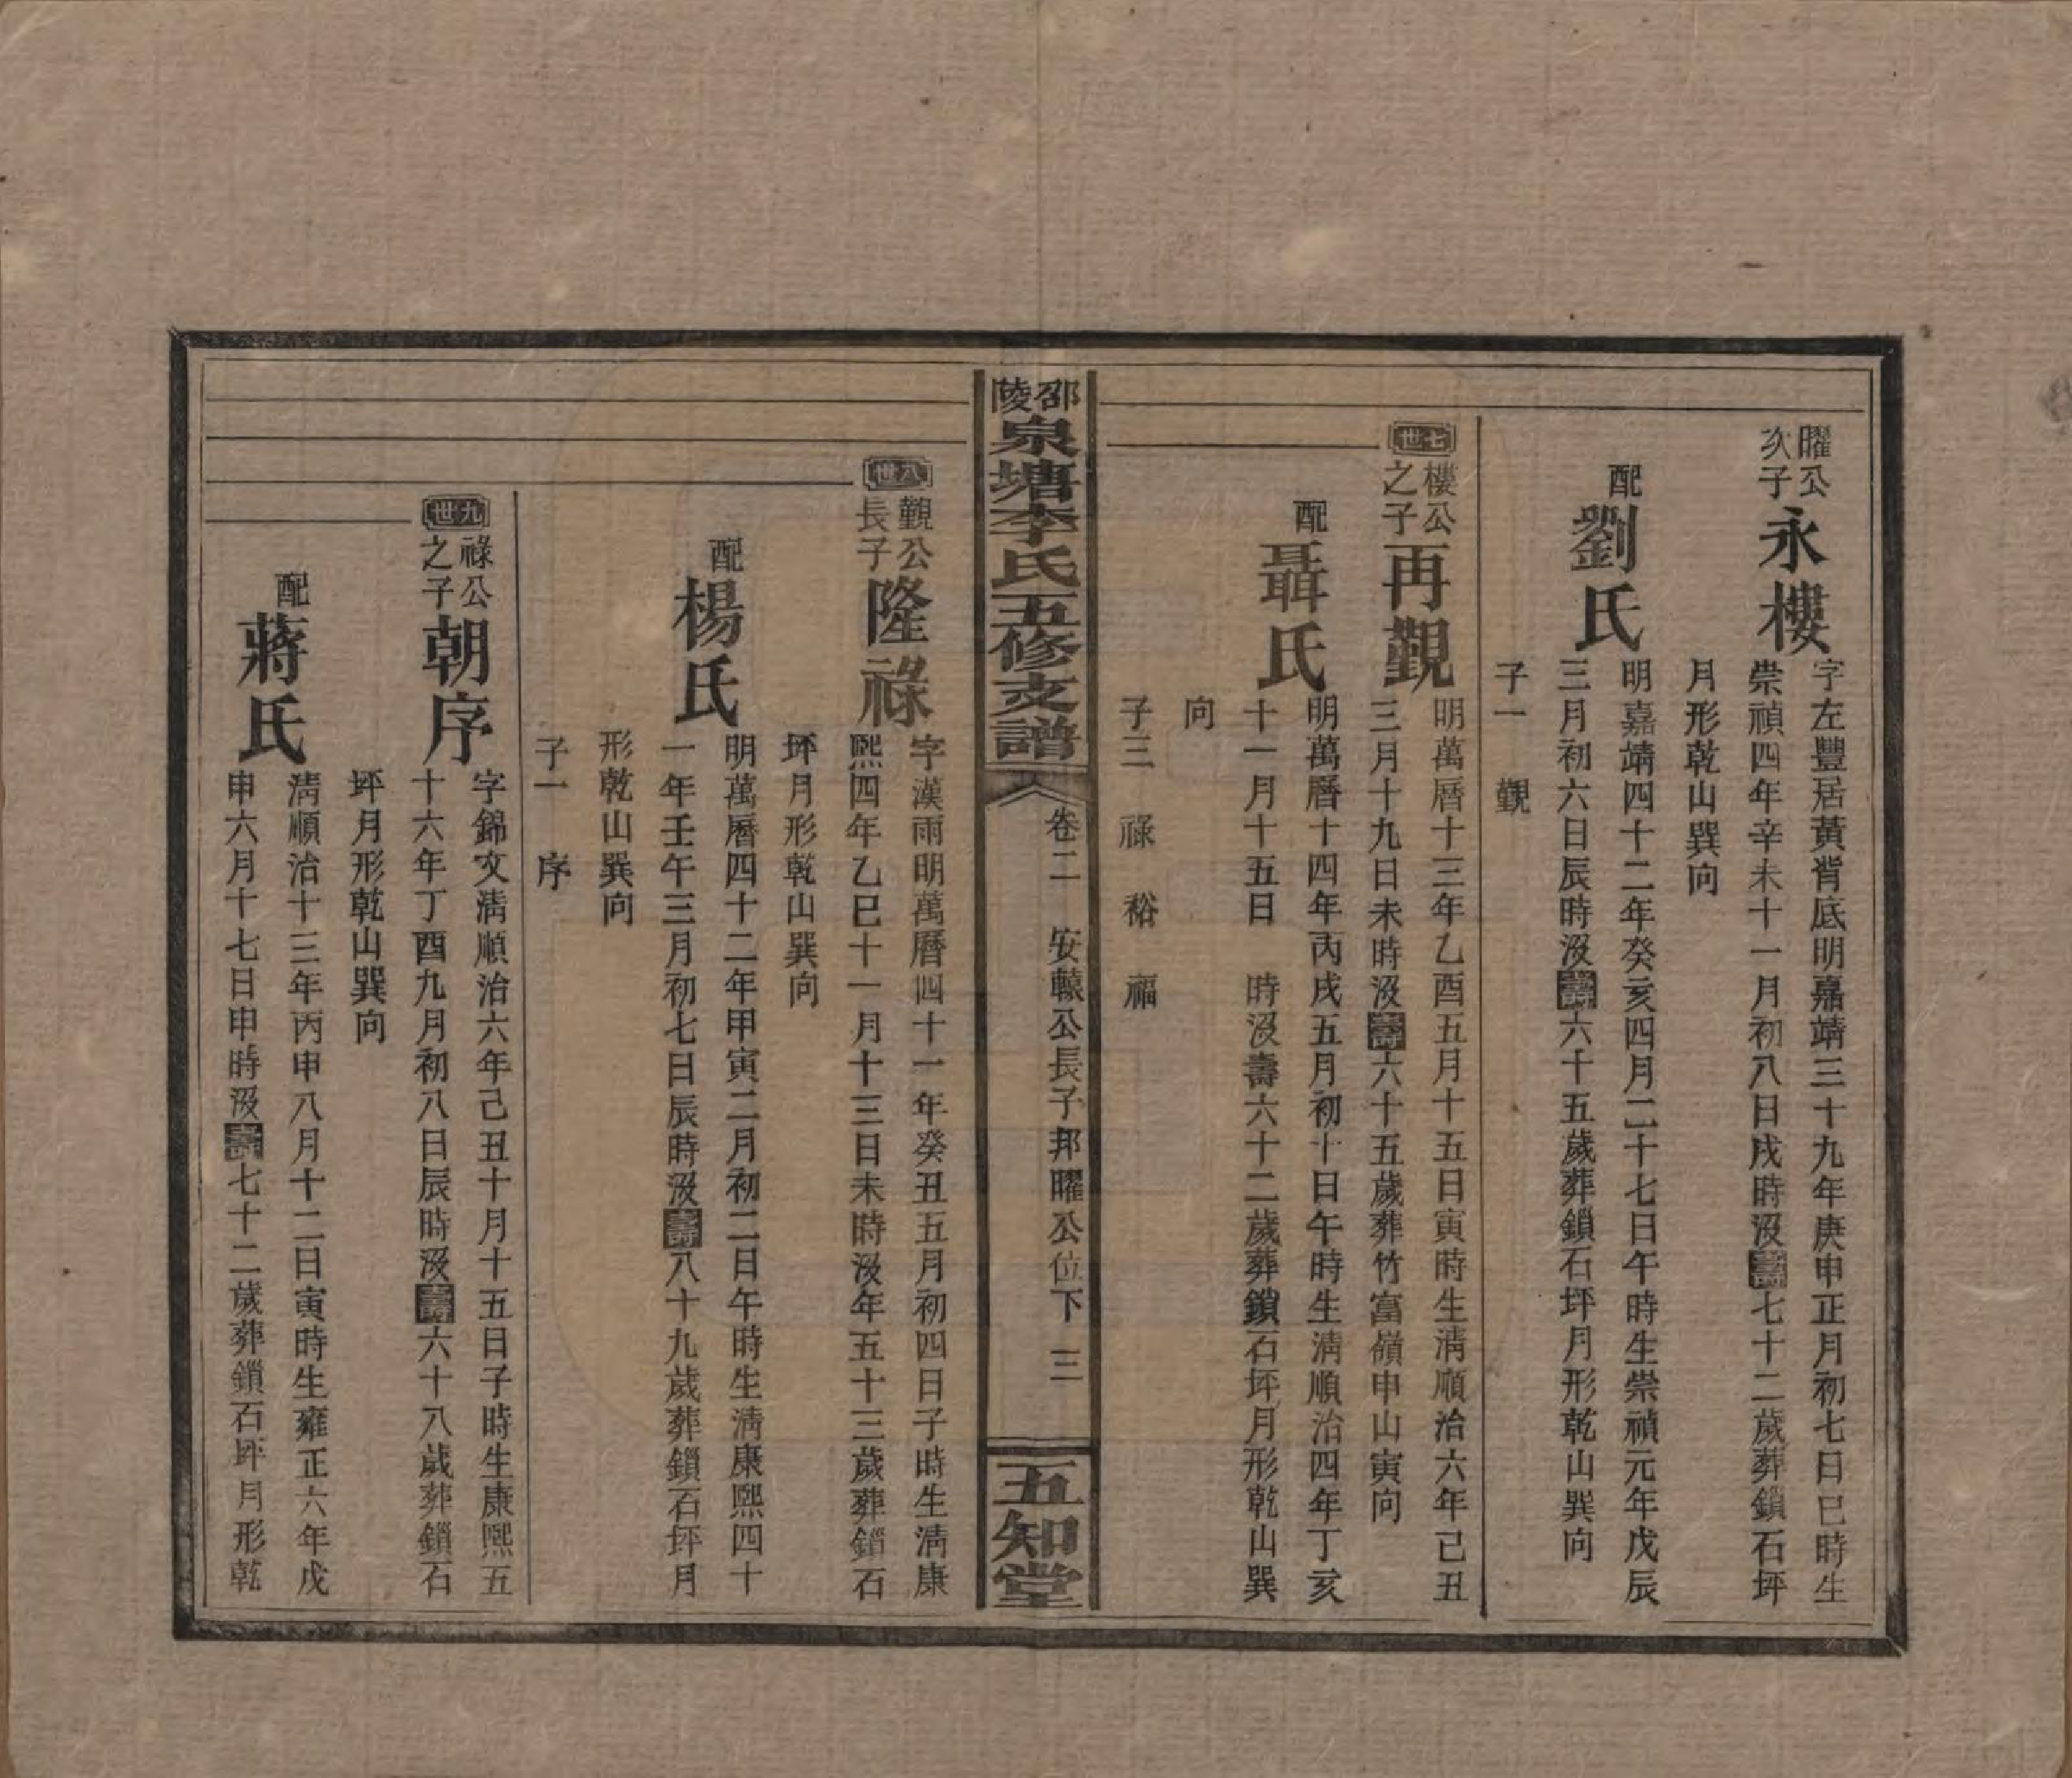 曜公
次子
永樓
字左豐居黃背底明嘉靖三十九年庚申正月初七日巳時生
崇禎四年辛未十一月初八日戌時沒壽七十二歲葬鎖石坪
月形乾山巽向
配
劉氏
明嘉靖四十二年癸亥四月二十七日午時生崇禎元年戊辰
三月初六日辰時沒壽六十五歲葬鎖石坪月形乾山巽向
子一 觀
七世
樓公
之子
再觀
明萬曆十三年乙酉五月十五日寅時生清順治六年己丑
三月十九日未時沒壽六十五歲葬竹富嶺申山寅向
配
聶氏
明萬曆十四年丙戌五月初十日午時生清順治四年丁亥
十一月十五日 時沒壽六十二歲葬鎖石坪月形乾山巽
向
子三 祿 裕 福
邵陵
泉塘李氏五修支譜
卷二 安轅公長子邦曜公位下 三
五知堂
八世
觀公
長子
隆祿
字漢雨明萬曆四十一年癸丑五月初四日子時生清康
熙四年乙巳十一月十三日未時沒年五十三歲葬鎖石
坪月形乾山巽向
配
楊氏
明萬曆四十二年甲寅二月初二日午時生清康熙四十
一年壬午三月初七日辰時沒壽八十九歲葬鎖石坪月
形乾山巽向
子一 序
九世
祿公
之子
朝序
字錦文清順治六年己丑十月十五日子時生康熙五
十六年丁酉九月初八日辰時沒壽六十八歲葬鎖石
坪月形乾山巽向
配
蔣氏
清順治十三年丙申八月十二日寅時生雍正六年戊
申六月十七日申時沒壽七十二歲葬鎖石坪月形乾